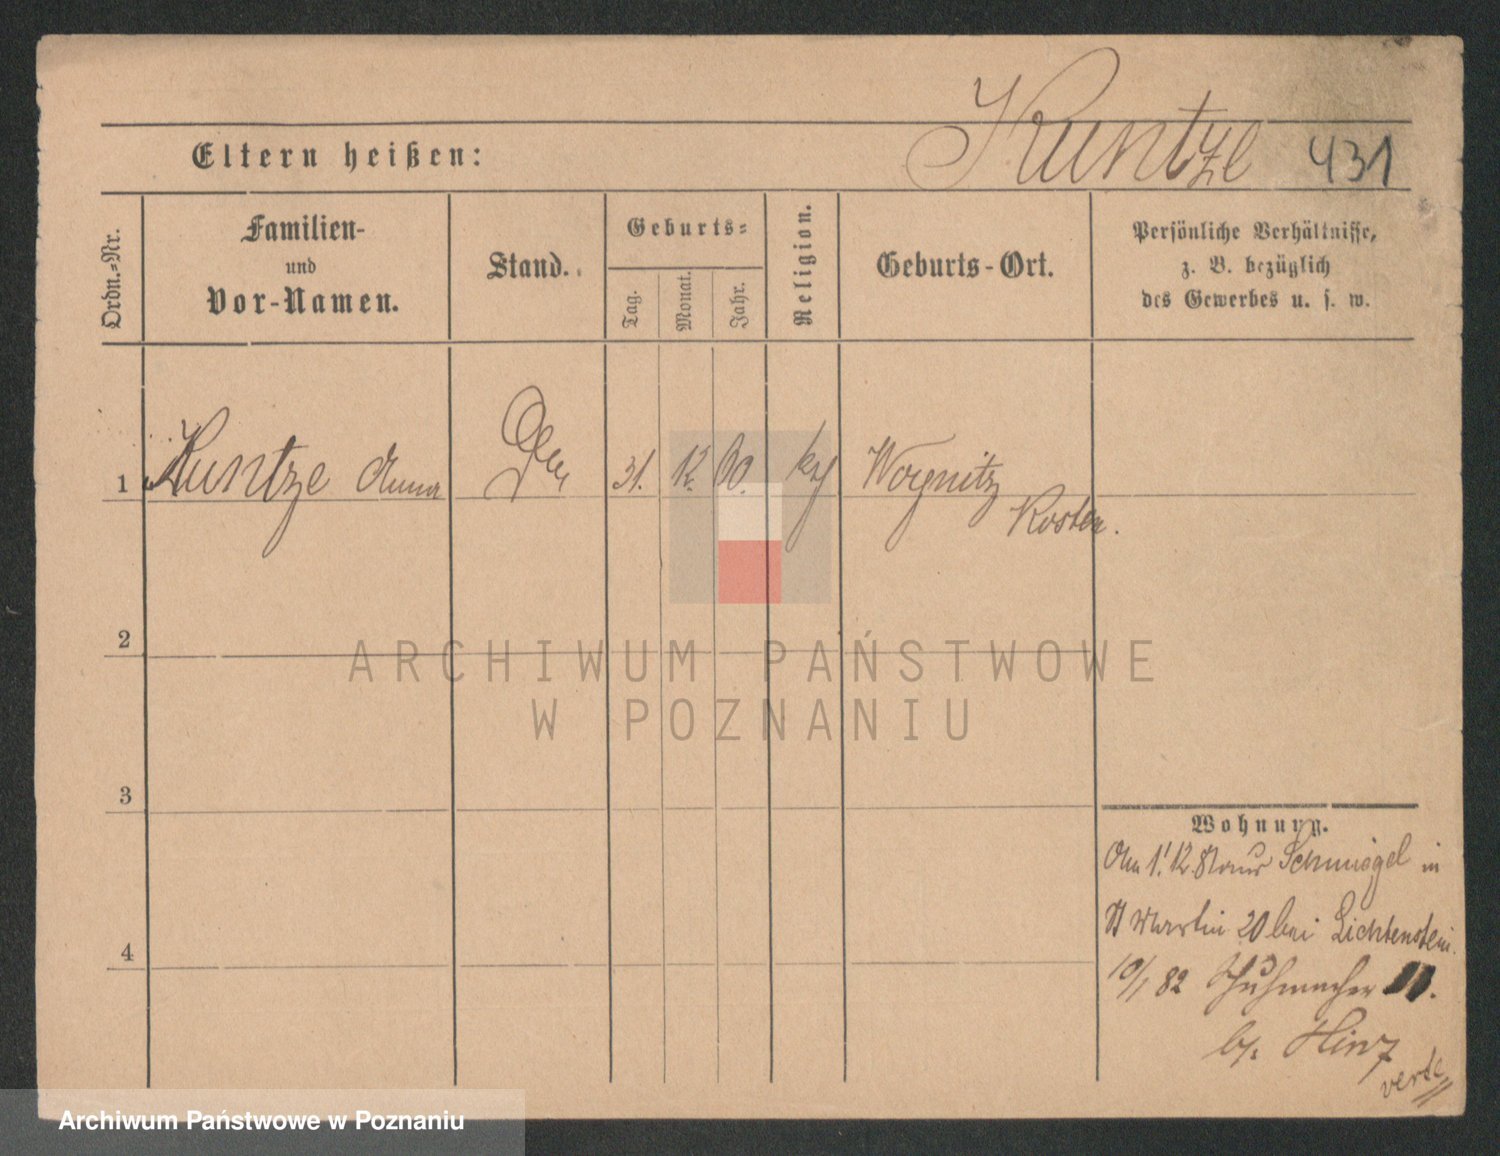 Kuntze 431
Eltern heißen:
Ordn.-Nr.
Familien-
und
Vor-Namen.
Stand.
Geburts-
Tag.
Monat.
Jahr.
Religion.
Geburts-Ort.
Persönliche Verhältnisse,
z. B. bezüglich
des Gewerbes u. s. w.
1 Kuntze Anna 31. 12. 60. Woynitz
Kosten.
2
ARCHIWUM PAŃSTWOWE
W POZNANIU
3
4
Wohnung.
Am 1. 12. 81 aus Schmiegel in
St Martin 20 bei Lichtenstein.
10/1 82 Schuhmacher 11.
b. Hinz
verte
Archiwum Państwowe w Poznaniu